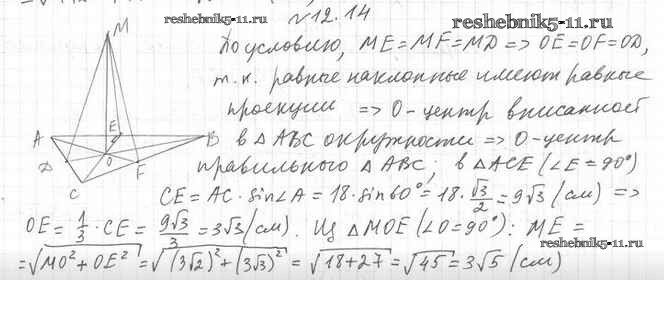 №12.14
reshebnik5-11.ru
reshebnik5-11.ru
M
По условию, ME=MF=MD => OE=OF=OD,
т.к. равные наклонные имеют равные
проекции => O-центр вписанной
A E B
в △ABC окружности => O-центр
D O F
правильного △ABC; в △ACE (∠E=90°)
C
CE = AC · sin∠A = 18 · sin60° = 18 · √3/2 = 9√3 (см) =>
OE = 1/3 · CE = 9√3/3 = 3√3 (см). Из △MOE (∠O=90°): ME =
reshebnik5-11.ru
= √(MO²+OE²) = √((3√2)²+(3√3)²) = √(18+27) = √45 = 3√5 (см)